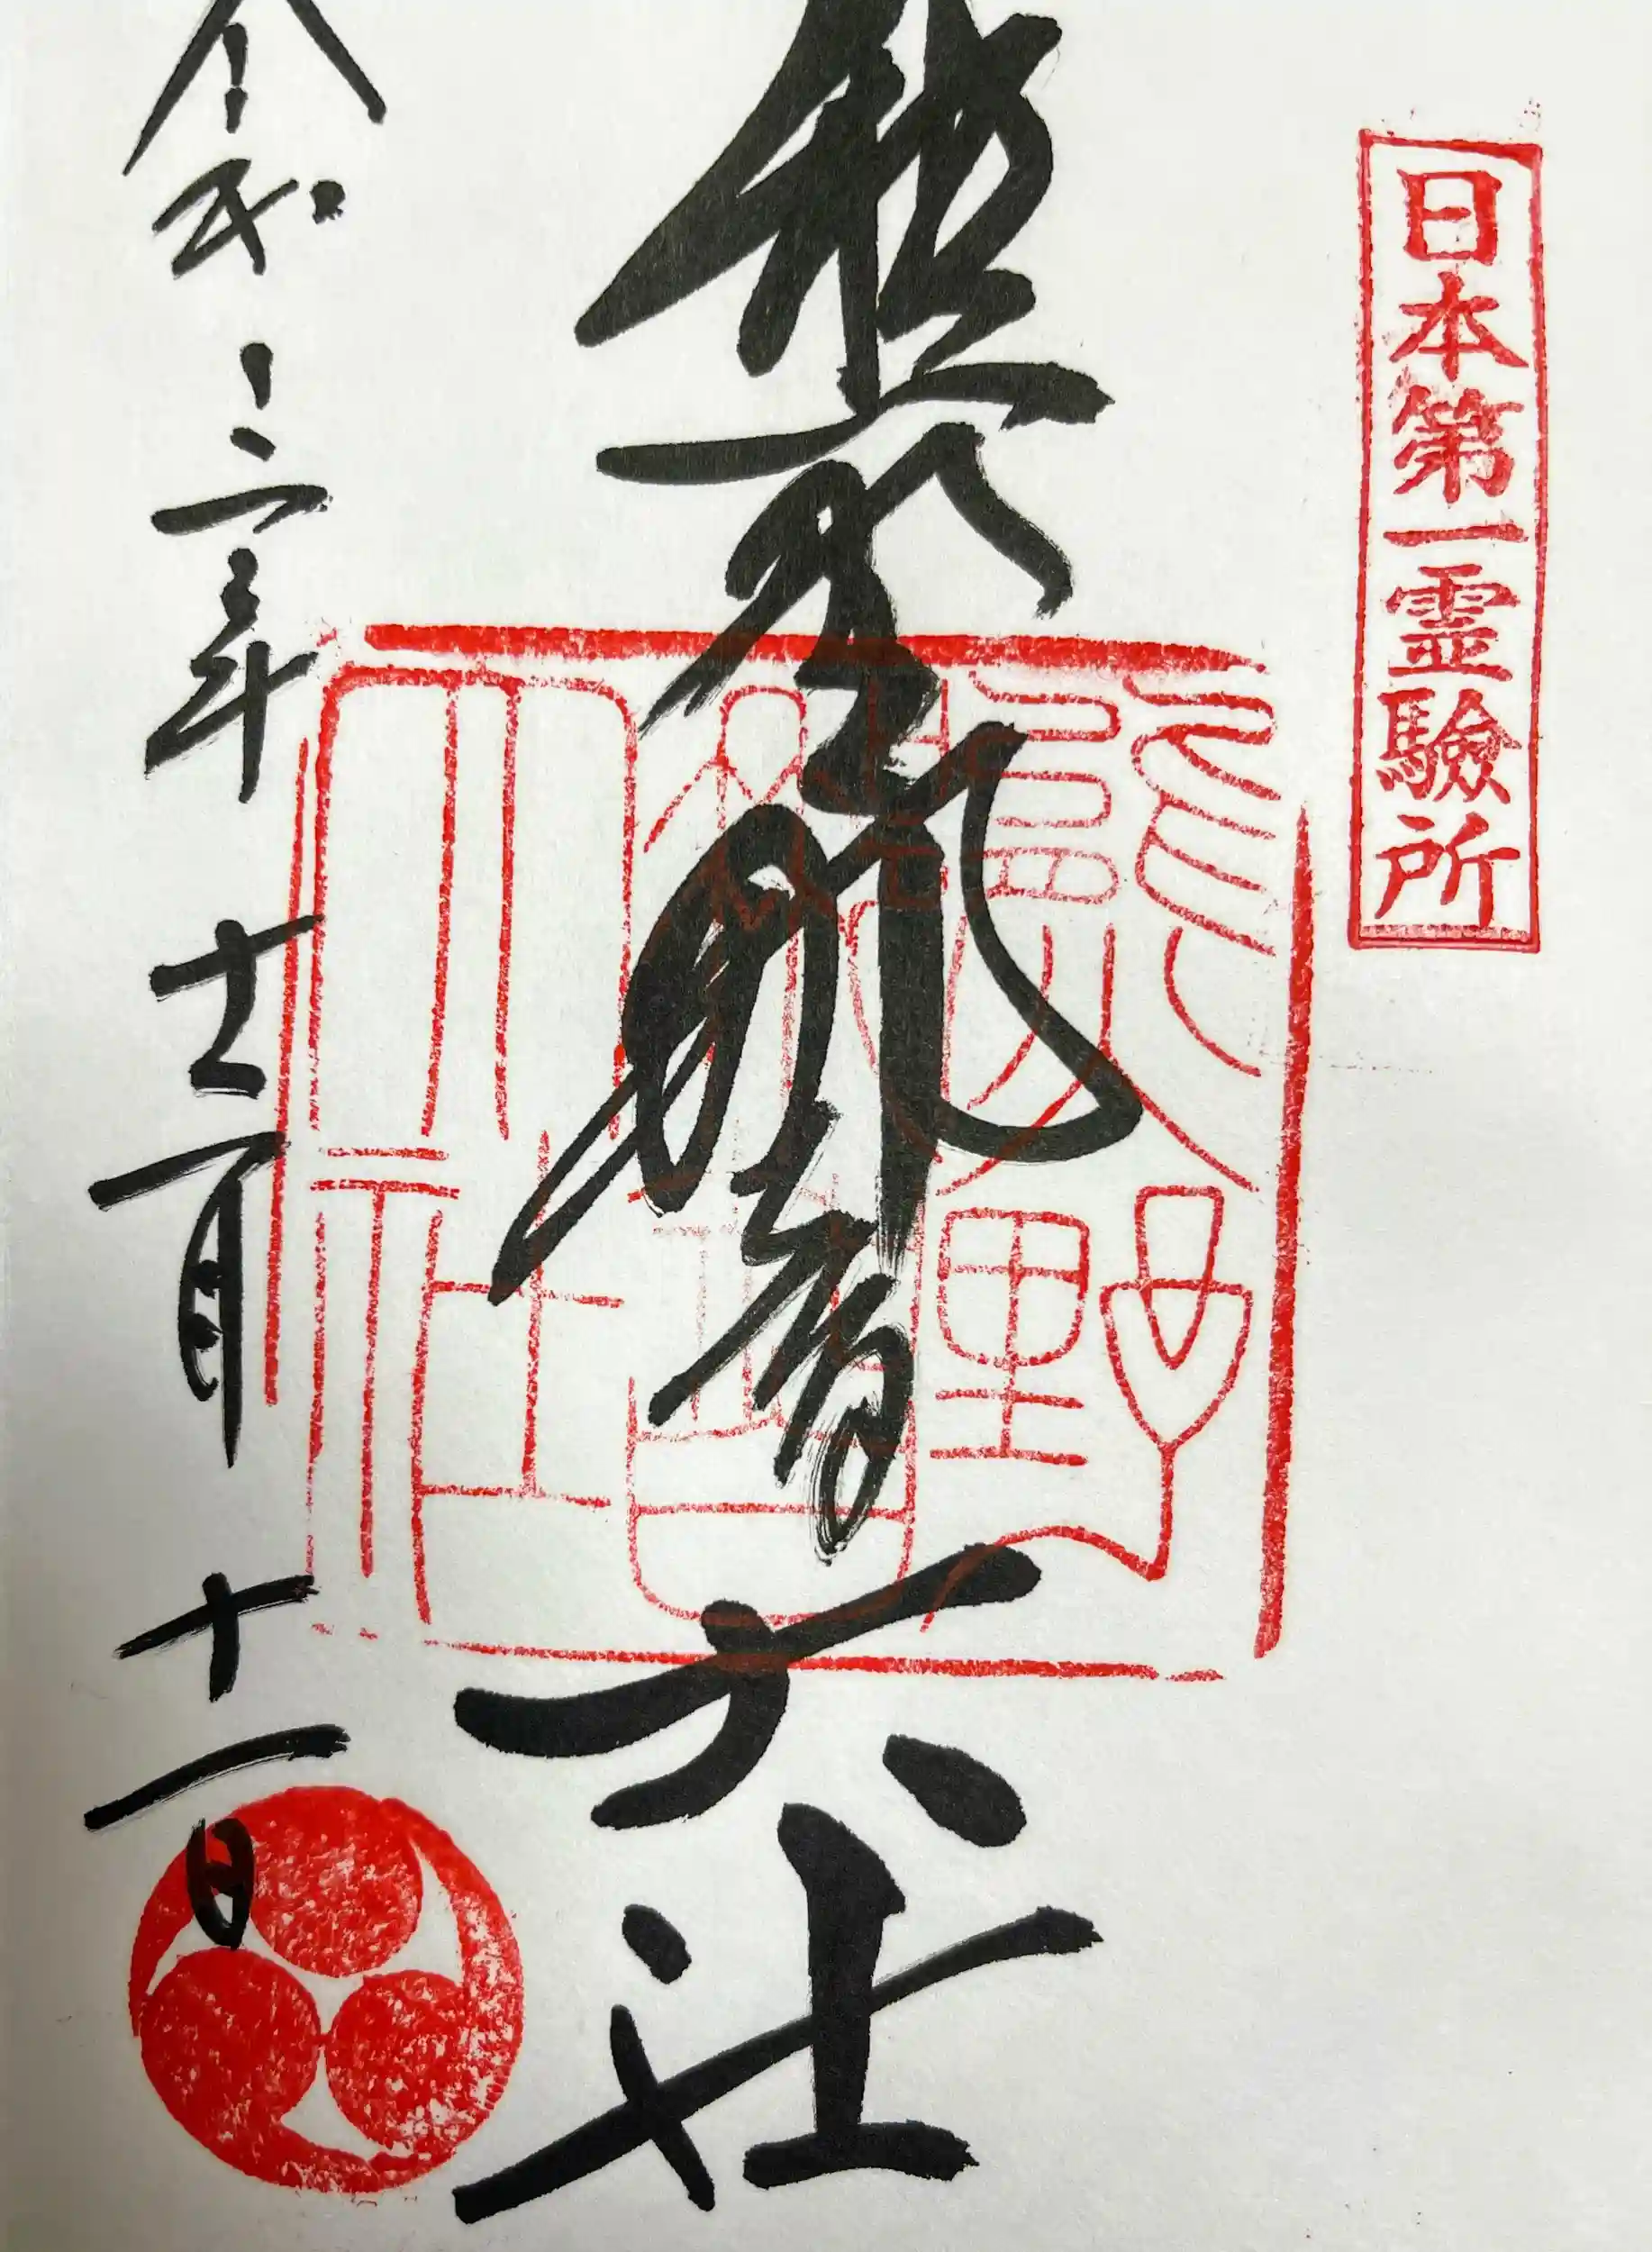 日本第一霊驗所
熊野那智大社
熊野那智大社
令和三年十二月十一日